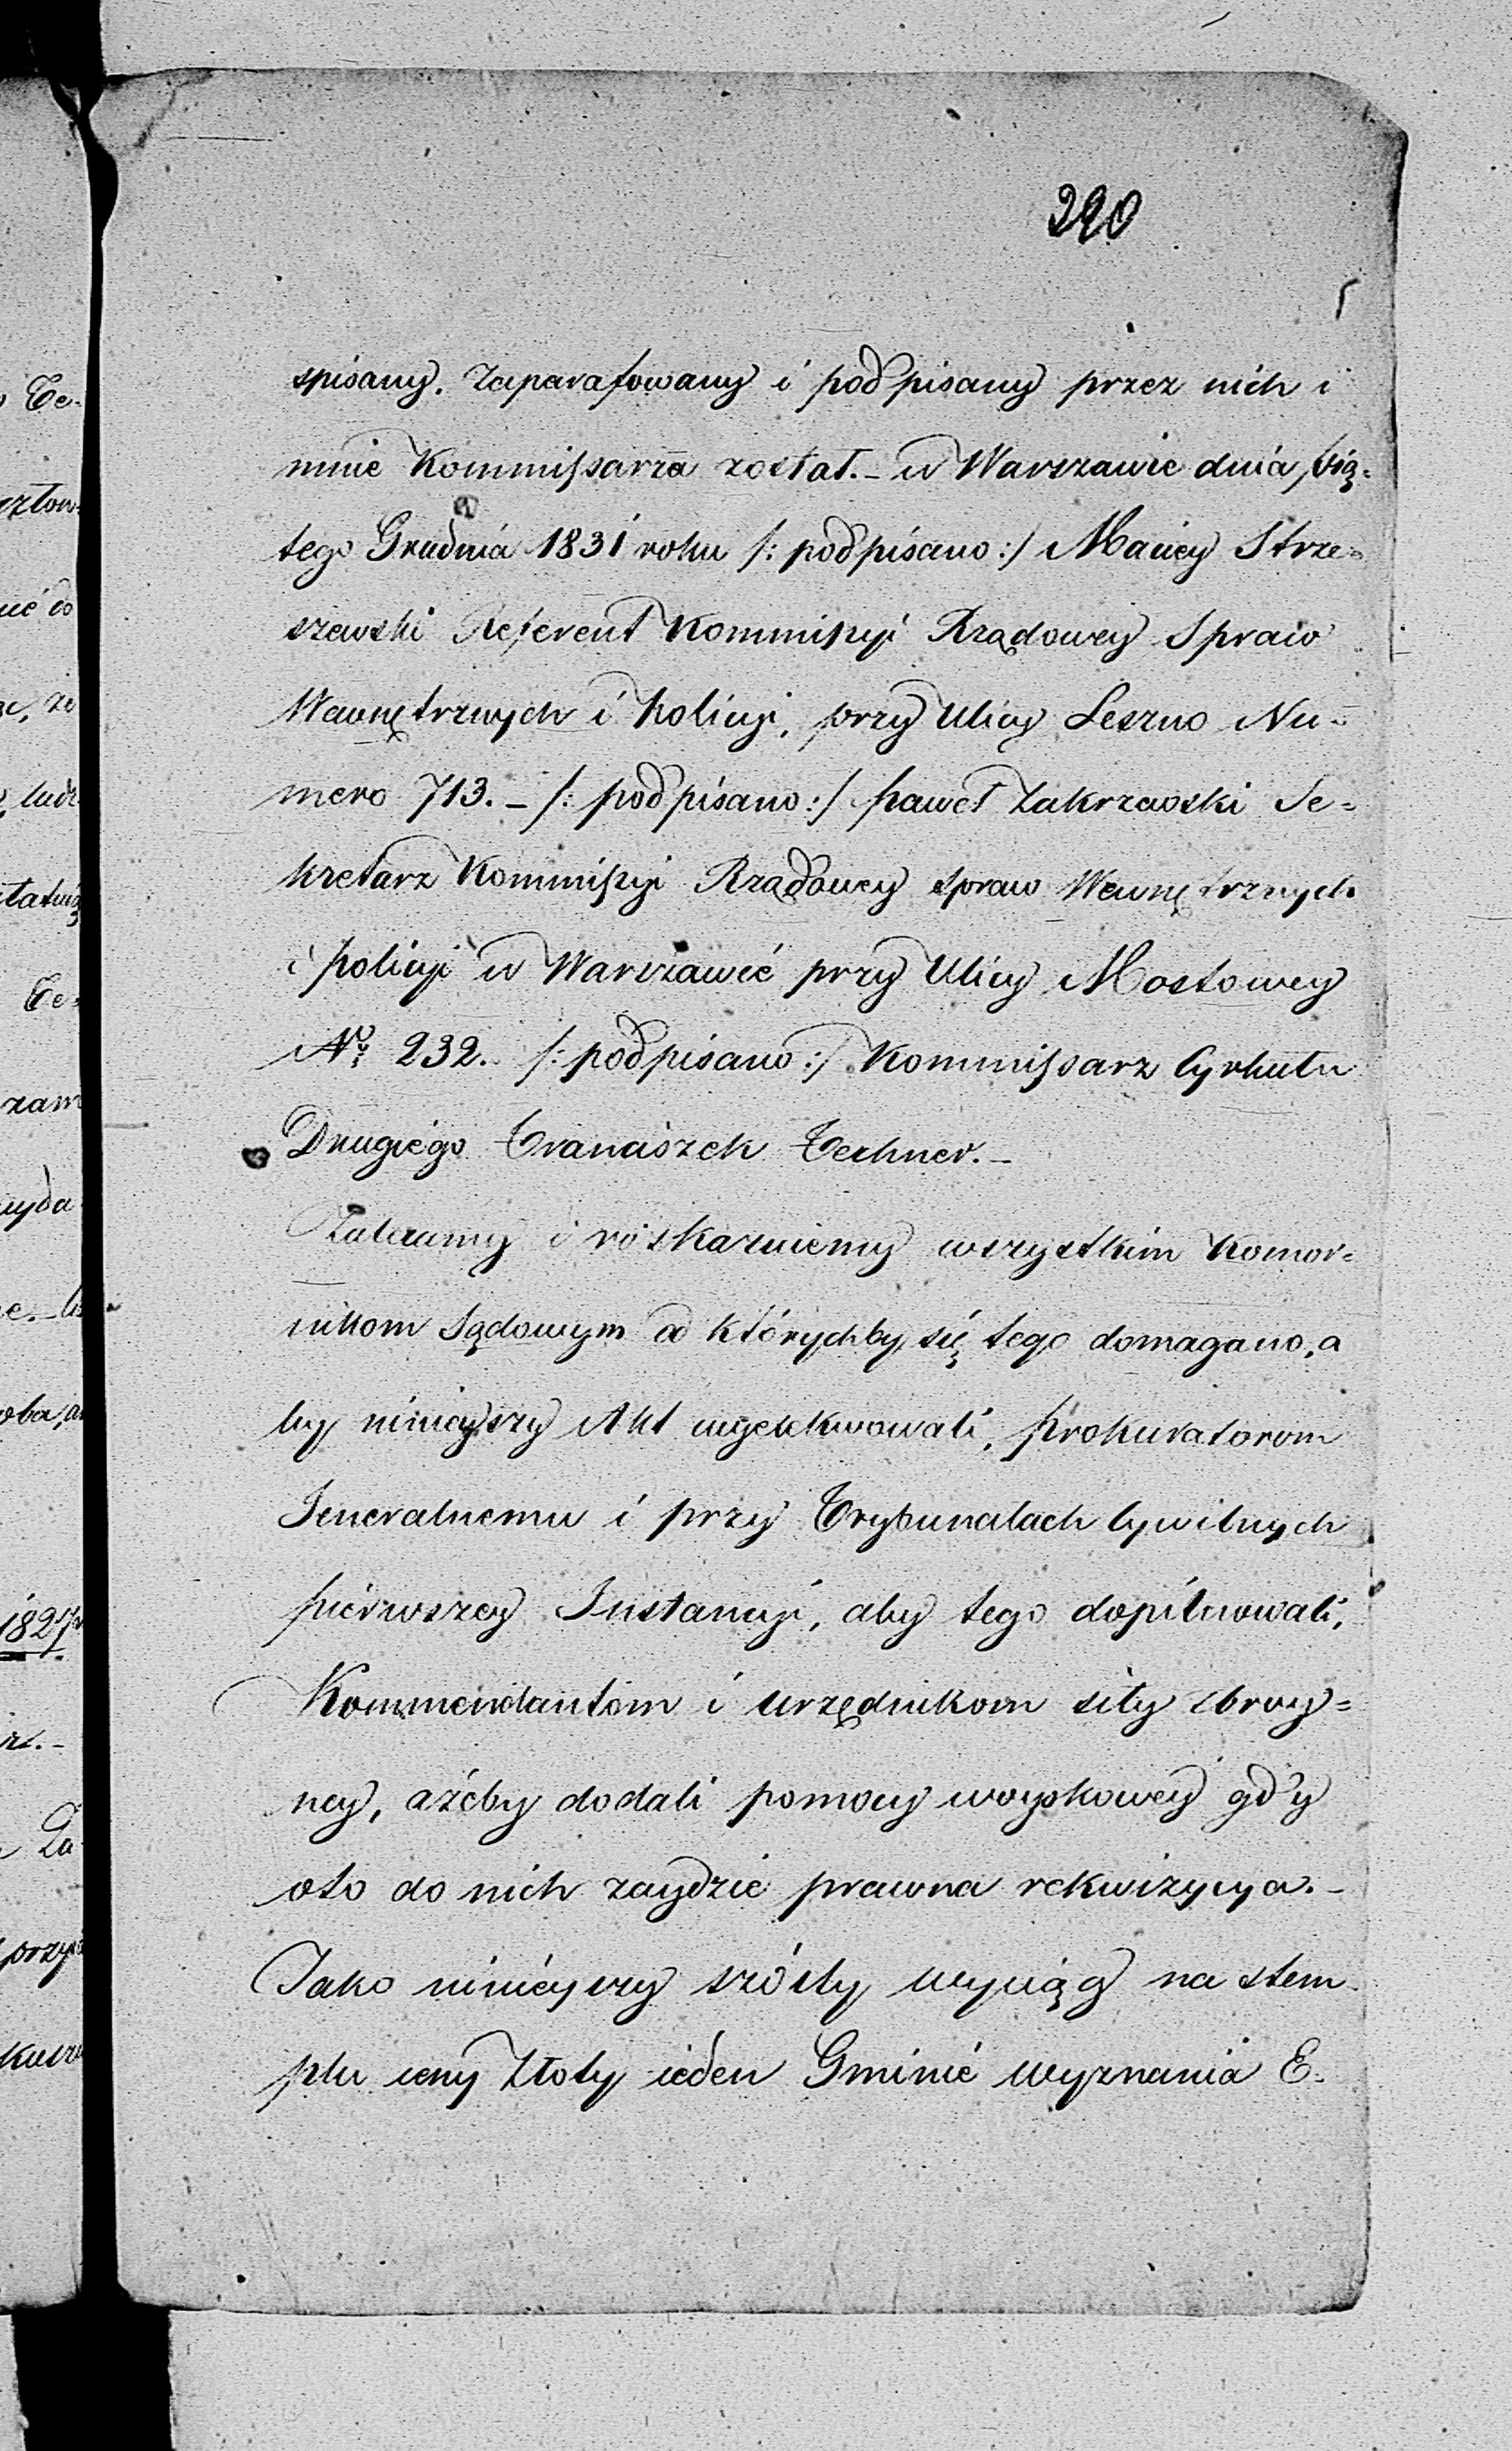 290
spisany, Zaparafowany i podpisany przez nich i
mnie Kommissarza został. – w Warszawie dnia Pią-
tego Grudnia 1831 roku /: podpisano :/ Maciey Strze-
szewski Referent Kommissyi Rządowey Spraw
Wewnętrznych i Policyi, przy Ulicy Leszno Nu-
mero 713. – /: podpisano :/ Paweł Zakrzewski Se=
kretarz Kommissyi Rządowey Spraw Wewnętrznych
i Policyi w Warszawie przy Ulicy Mostowey
No 232. /: podpisano :/ Kommissarz Cyrkułu
Drugiego Franciszek Techner. –
Zalecamy i roskazuiemy wszystkim Komor=
nikom Sądowym od którychby się tego domagano, a
by ninieyszy Akt wyexekwowali, Prokuratorom
Jeneralnemu i przy Trybunalach Cywilnych
pierwszey Instancyi, aby tego dopilnowali,
Kommendantom i Urzędnikom siły zbroy=
ney, ażeby dodali pomocy woyskowey gdy
oto do nich zaydzie prawna rekwizycya. –
Jako ninieyszy szósty wyciąg na stem
plu ceny Złoty ieden Gminie wyznania E-